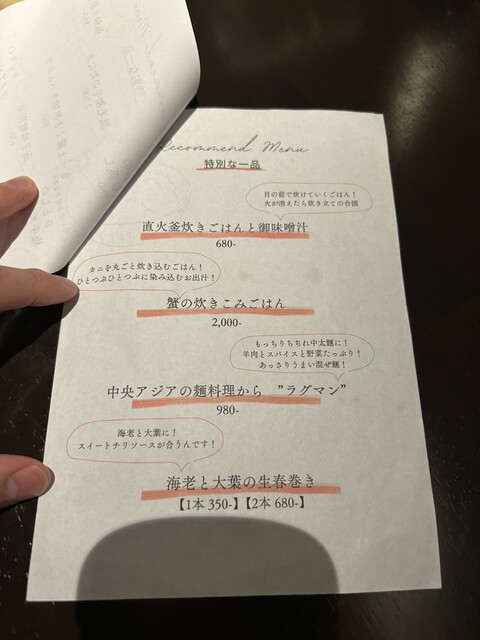 Recommend Menu
特別な一品
目の前で炊けていくごはん！
火が消えたら炊き立ての合図
直火釜炊きごはんと御味噌汁
680-
カニを丸ごと炊き込むごはん！
ひとつぶひとつぶに染み込むお出汁！
蟹の炊きこみごはん
2,000-
もっちりちぢれ中太麺に！
羊肉とスパイスと野菜たっぷり！
あっさりうまい混ぜ麺！
中央アジアの麺料理から ”ラグマン”
980-
海老と大葉に！
スイートチリソースが合うんです！
海老と大葉の生春巻き
【1本 350-】【2本 680-】